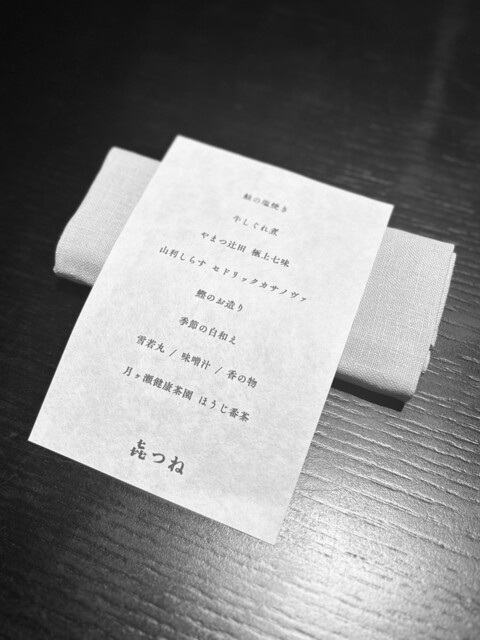 鮭の塩焼き
牛しぐれ煮
やまつ辻田 極上七味
山利しらす セドリックカサノヴァ
鰹のお造り
季節の白和え
雪若丸 / 味噌汁 / 香の物
月ヶ瀬健康茶園 ほうじ番茶
㐂つね